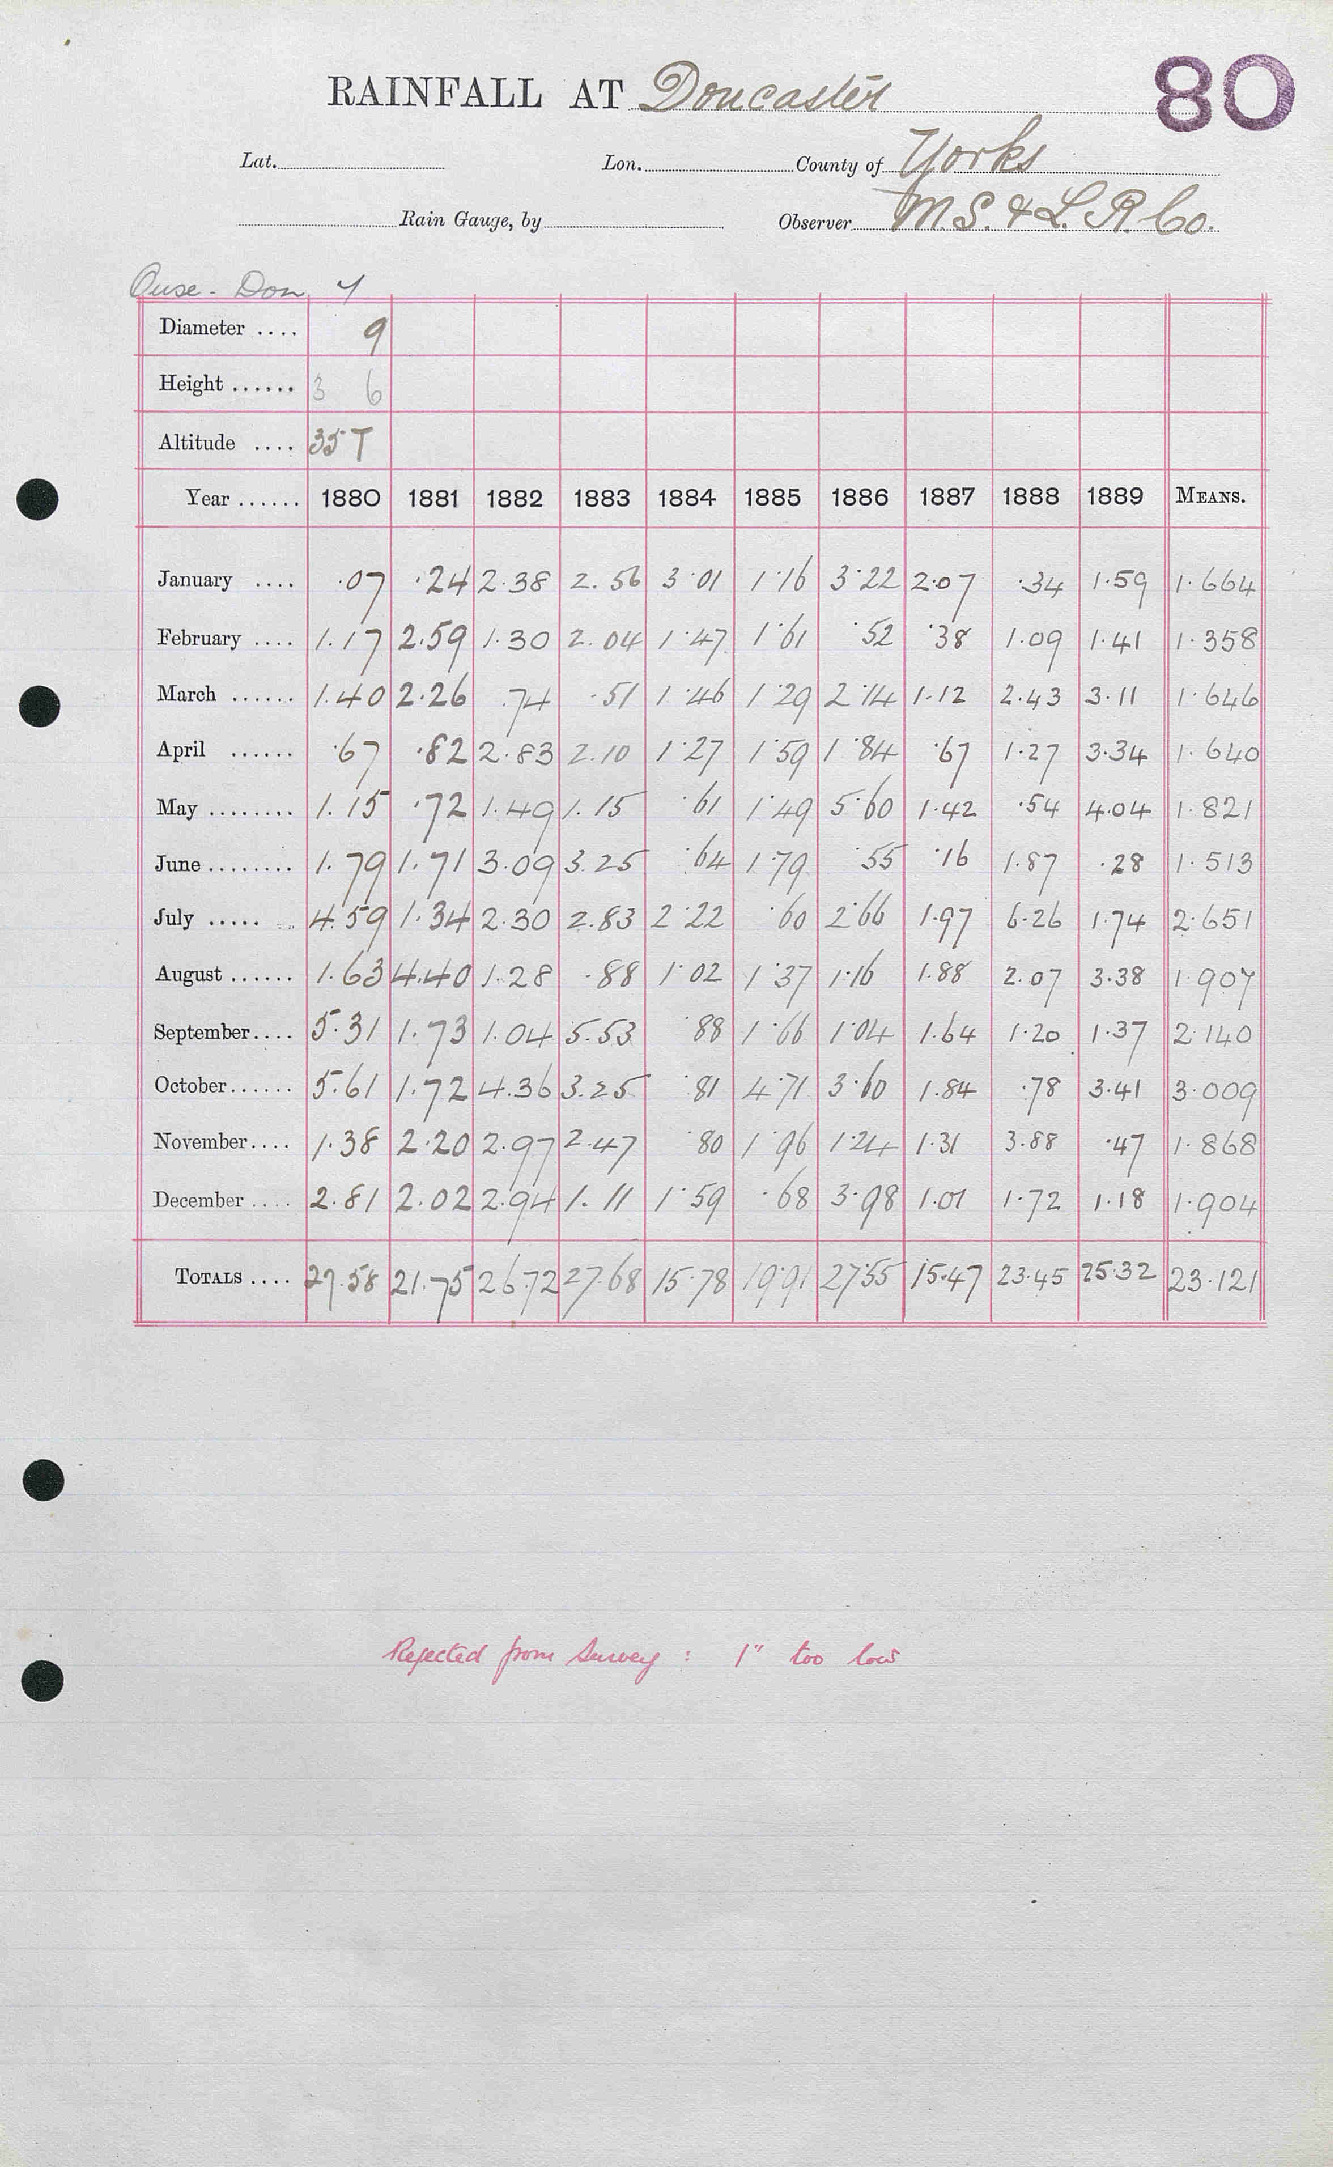 80
RAINFALL AT Doncaster
Lat. Lon. County of Yorks
Rain Gauge, by Observer M.S. & L. R. Co.
Ouse - Don 4
Diameter .... 9
Height ...... 3 6
Altitude .... 35 T
Year ...... 1880 1881 1882 1883 1884 1885 1886 1887 1888 1889 MEANS.
January .... .07 .24 2.38 2.56 3.01 1.16 3.22 2.07 .34 1.59 1.664
February .... 1.17 2.59 1.30 2.04 1.47 1.61 .52 .38 1.09 1.41 1.358
March ...... 1.40 2.26 .74 .51 1.46 1.29 2.14 1.12 2.43 3.11 1.646
April ...... .67 .82 2.83 2.10 1.27 1.59 1.84 .67 1.27 3.34 1.640
May ........ 1.15 .72 1.49 1.15 .61 1.49 5.60 1.42 .54 4.04 1.821
June ........ 1.79 1.71 3.09 3.25 .64 1.79 .55 .16 1.87 .28 1.513
July ..... 4.59 1.34 2.30 2.83 2.22 .60 2.66 1.97 6.26 1.74 2.651
August ...... 1.63 4.40 1.28 .88 1.02 1.37 1.16 1.88 2.07 3.38 1.907
September.... 5.31 1.73 1.04 5.53 .88 1.66 1.04 1.64 1.20 1.37 2.140
October...... 5.61 1.72 4.36 3.25 .81 4.71 3.60 1.84 .78 3.41 3.009
November.... 1.38 2.20 2.97 2.47 .80 1.96 1.24 1.31 3.88 .47 1.868
December .... 2.81 2.02 2.94 1.11 1.59 .68 3.98 1.01 1.72 1.18 1.904
TOTALS .... 27.58 21.75 26.72 27.68 15.78 19.91 27.55 15.47 23.45 25.32 23.121
Rejected from Survey : 1" too low